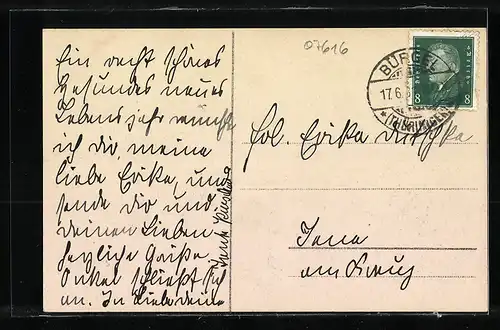 Ein recht schönes
Gesundes neues
Lebensjahr wünscht
ich dir, meine
liebe Erika, und
sende dir und
deinen Lieben
herzliche Grüße.
Onkel schließt sich
an. In Liebe deine
Tante
07616
BÜRGEL
17.6.
*(THÜRINGEN)
8 8
Frl. Erika
Jena
am Kreuz